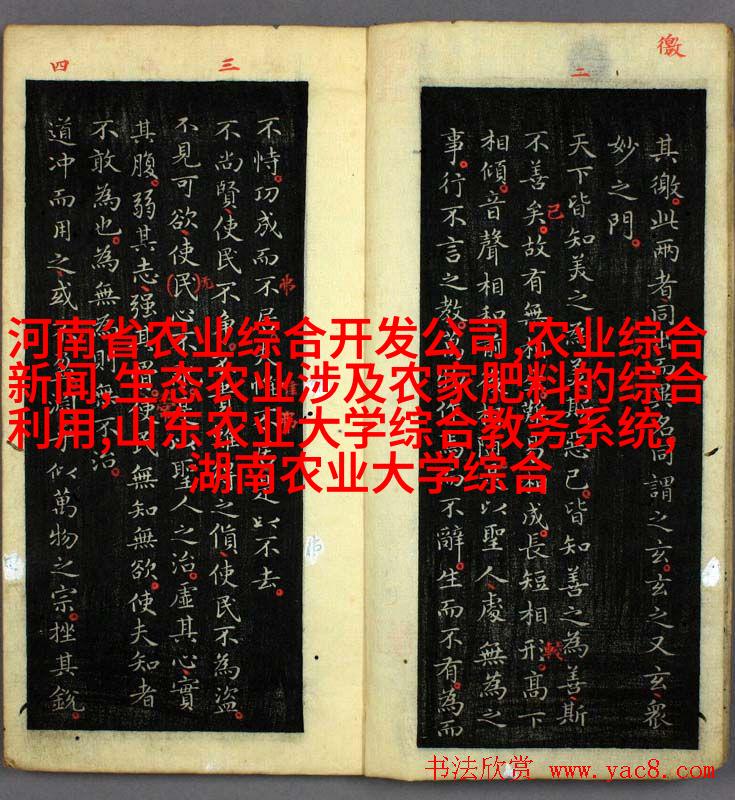 徼
二
其徼。此兩者同出而異名同謂之玄。玄之又玄、衆
妙之門。
天下皆知美之斯惡已。皆知善之為善斯
不善矣。故有無相成。長短相形。高下
相傾。音聲相和以聖人處無為之
事。行不言之教。作而不辭。生而不有。為而
三
四
不恃。功成而不居是以不去。
不尚賢、使民不爭。之貨、使民不為盜。
不見可欲、使民心不聖人之治。虛其心、實
其腹。弱其志、強其骨。使民無知無欲。使夫知者
不敢為也。為無則無不治。
道冲而用之、或萬物之宗。挫其銳
河南省农业综合开发公司,农业综合
新闻,生态农业涉及农家肥料的综合
利用,山东农业大学综合教务系统,
湖南农业大学综合
书法欣赏 www.yac8.com